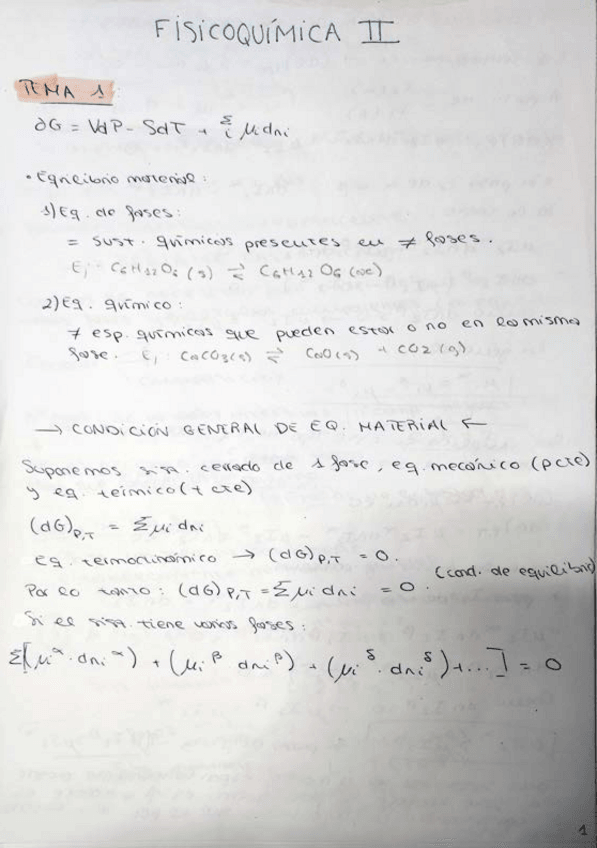 FISICOQUÍMICA II
TEMA 1:
∂G = VdP - SdT + Σi μi dni
• Equilibrio material:
1) Eq. de fases:
= sust. químicas presentes en ≠ fases.
Ej: C6H12O6 (s) ⇄ C6H12O6 (ac)
2) Eq. químico:
≠ esp. químicas que pueden estar o no en la misma
fase. Ej: CaCO3(s) ⇄ CaO(s) + CO2(g)
→ CONDICIÓN GENERAL DE EQ. MATERIAL ←
Suponemos sist. cerrado de 1 fase, eq. mecánico (p cte)
y eq. térmico (t cte)
(dG)P,T = Σμi dni
eq. termodinámico → (dG)P,T = 0.
Por lo tanto: (dG)P,T = Σμi dni = 0. (cond. de equilibrio)
Si el sist. tiene varias fases:
Σ[(μi^α · dni^α) + (μi^β dni^β) + (μi^δ · dni^δ) + ...] = 0
1